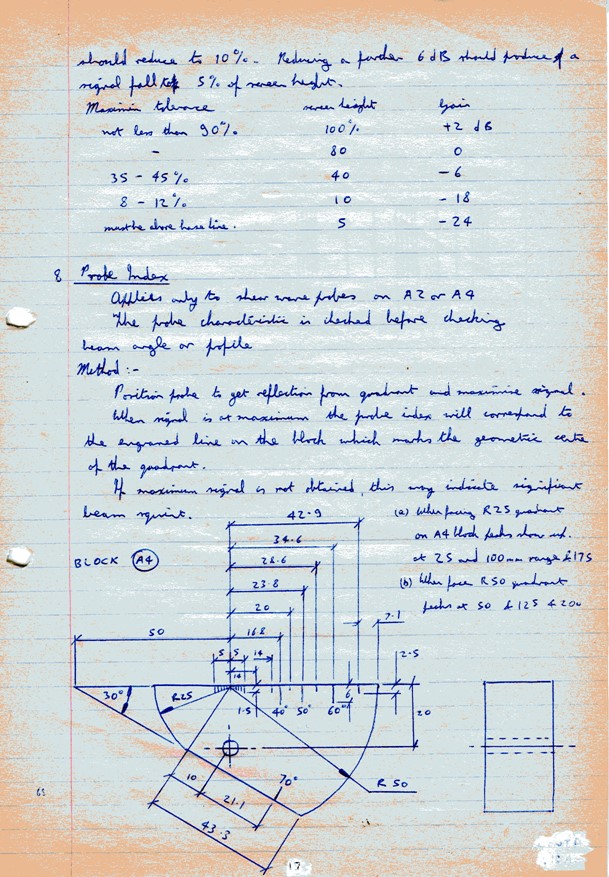 should reduce to 10%. Reducing a further 6 dB should produce a
signal fall to 5% of screen height.
Maximim tolerance screen height Gain
not less than 90%. 100% +2 dB
- 80 0
35 - 45% 40 -6
8 - 12% 10 - 18
must be above base line. 5 - 24
8 Probe Index
Applies only to shear wave probes on A2 or A4
The probe characteristic is checked before checking
beam angle or profile
Method:-
Position probe to get reflection from quadrant and maximise signal.
When signal is at maximum the probe index will correspond to
the engraved line on the block which marks the geometric centre
of the quadrant.
If maximum signal is not obtained, this may indicate significant
beam squint.
(a) When facing R25 quadrant
on A4 block peaks show
at 25 and 100mm range & 175
(b) When face R50 quadrant
peaks at 50 & 125 & 200
BLOCK A4
42.9
34.6
28.6
23.8
20
50 16.8
7.1
5 5 14
14
2.5
30° R25 1.5 40° 50° 60° 6
20
10 70°
21.1
R 50
43.3
17